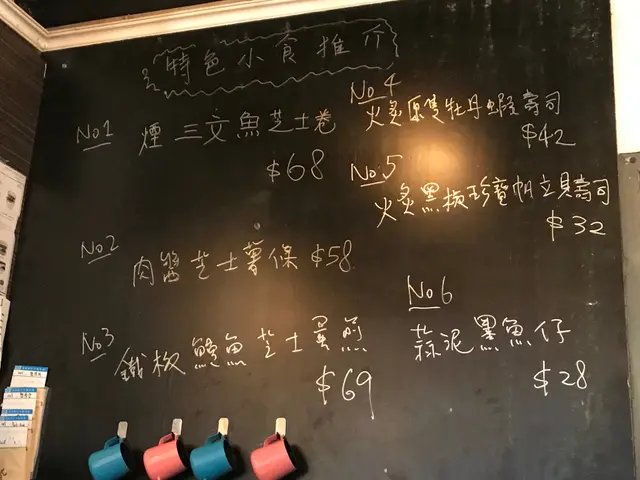 特色小食推介
No1
煙三文魚芝士卷
$68
No2
肉醬芝士薯條 $58
No3
鐵板鰻魚芝士蛋煎
$69
No4
火炙原隻牡丹蝦壽司
$42
No.5
火炙黑椒珍寶帆立貝壽司
$32
No6
蒜泥墨魚仔
$28